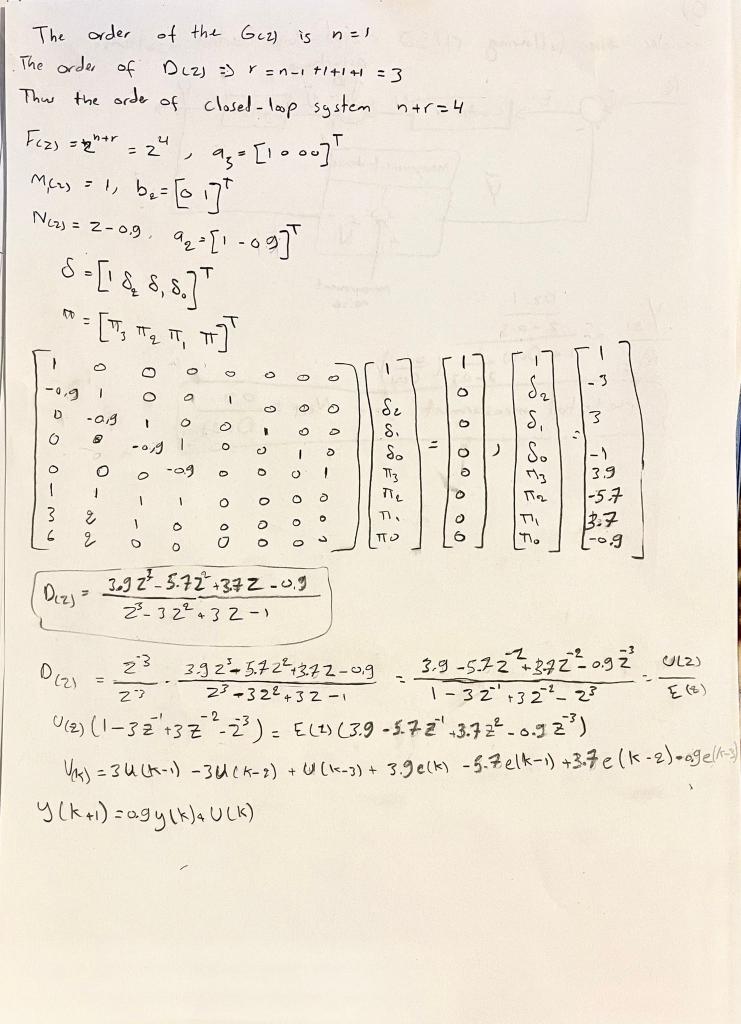 The order of the G(z) is n=1
The order of D(z) => r = n-1+1+1+1 = 3
Thus the order of closed-loop system n+r=4
F(z) = z^{n+r} = z^4, a_3 = [1 0 0 0]^T
M(z) = 1, b_2 = [0 1]^T
N(z) = z-0.9, a_2 = [1 -0.9]^T
δ = [1 δ_2 δ_1 δ_0]^T
π = [π_3 π_2 π_1 π]^T
1 0 0 0 0 0 0 0 | 1 | 1 | 1 | 1
-0.9 1 0 0 1 0 0 0 | δ_2 | 0 | δ_2 | -3
0 -0.9 1 0 0 1 0 0 | δ_1 | 0 | δ_1 | 3
0 0 -0.9 1 0 0 1 0 | δ_0 = 0 , δ_0 = -1
0 0 0 -0.9 0 0 0 1 | π_3 | 0 | π_3 | 3.9
1 1 1 1 0 0 0 0 | π_2 | 0 | π_2 | -5.7
3 2 1 0 0 0 0 0 | π_1 | 0 | π_1 | 3.7
6 2 0 0 0 0 0 0 | π_0 | 0 | π_0 | -0.9
D(z) = (3.9z^3 - 5.7z^2 + 3.7z - 0.9) / (z^3 - 3z^2 + 3z - 1)
D(z) = z^{-3}/z^{-3} · (3.9z^3 - 5.7z^2 + 3.7z - 0.9)/(z^3 - 3z^2 + 3z - 1) = (3.9 - 5.7z^{-1} + 3.7z^{-2} - 0.9z^{-3})/(1 - 3z^{-1} + 3z^{-2} - z^{-3}) = U(z)/E(z)
U(z)(1 - 3z^{-1} + 3z^{-2} - z^{-3}) = E(z)(3.9 - 5.7z^{-1} + 3.7z^{-2} - 0.9z^{-3})
U(k) = 3U(k-1) - 3U(k-2) + U(k-3) + 3.9e(k) - 5.7e(k-1) + 3.7e(k-2) - 0.9e(k-3)
y(k+1) = 0.9y(k) + U(k)